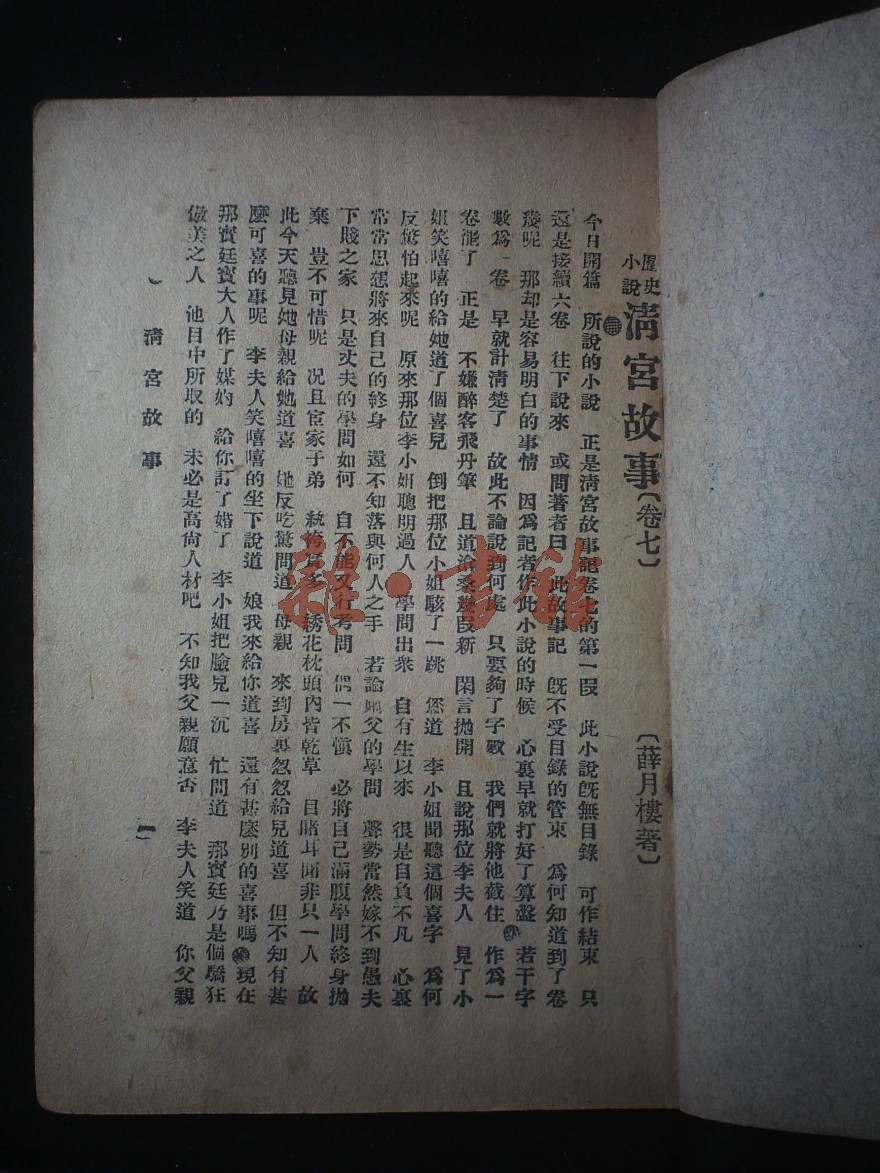 歷史小說 清宮故事〔卷七〕 〔薛月樓著〕
今日開篇 所說的小說 正是清宮故事記卷七的第一段 此小說既無目錄 可作結束 只
還是接續六卷 往下說來 或問著者曰 此故事記 既不受目錄的管束 為何知道到了卷
幾呢 那却是容易明白的事情 因為記者作此小說的時候 心裏早就打好了算盤 若干字
數為一卷 早就計清楚了 故此不論說到何處 只要夠了字數 我們就將他截住 作為一
卷能了 正是 不嫌醉客飛丹筆 且道滄桑幾段新 閑言拋開 且說那位李夫人 見了小
姐笑嘻嘻的給她道了個喜兒 倒把那位小姐駭了一跳 您道 李小姐聞聽這個喜字 為何
反驚怕起來呢 原來那位李小姐聰明過人 學問出衆 自有生以來 很是自負不凡 心裏
常常思想將來自己的終身 還不知落與何人之手 若論她父的學問 聲勢當然嫁不到愚夫
下賤之家 只是丈夫的學問如何 自不能又行考問 倘一不愼 必將自己滿腹學問終身拋
棄 豈不可惜呢 况且宦家子弟 紈袴實多 綉花枕頭內皆乾草 目賭耳聞非只一人 故
此今天聽見她母親給她道喜 她反吃驚問道 母親 來到房裏忽忽給兒道喜 但不知有甚
麼可喜的事呢 李夫人笑嘻嘻的坐下說道 娘我來給你道喜 還有甚麼別的喜事嗎 現在
那寳廷寳大人作了媒妁 給你訂了婚了 李小姐把臉兒一沉 忙問道 那寳廷乃是個驕狂
傲美之人 他目中所取的 未必是高尙人材吧 不知我父親願意否 李夫人笑道 你父親
清宮故事 一
雜·書館